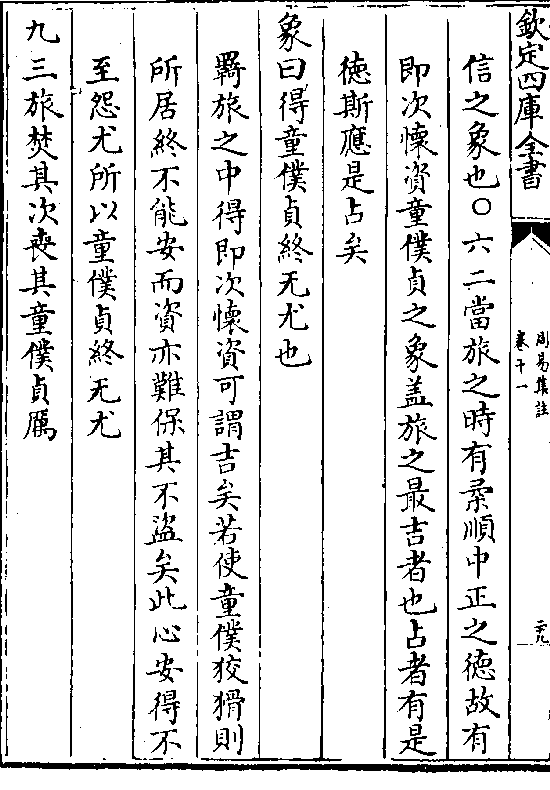 欽定四庫全書
周易集註
卷十一
二九
信之象也〇六二當旅之時有柔順中正之徳故有
即次懷資童僕貞之象盖旅之最吉者也占者有是
徳斯應是占矣
象曰得童僕貞終无尤也
羇旅之中得即次懷資可謂吉矣若使童僕狡猾則
所居終不能安而資亦難保其不盜矣此心安得不
至怨尤所以童僕貞終无尤
九三旅焚其次喪其童僕貞厲